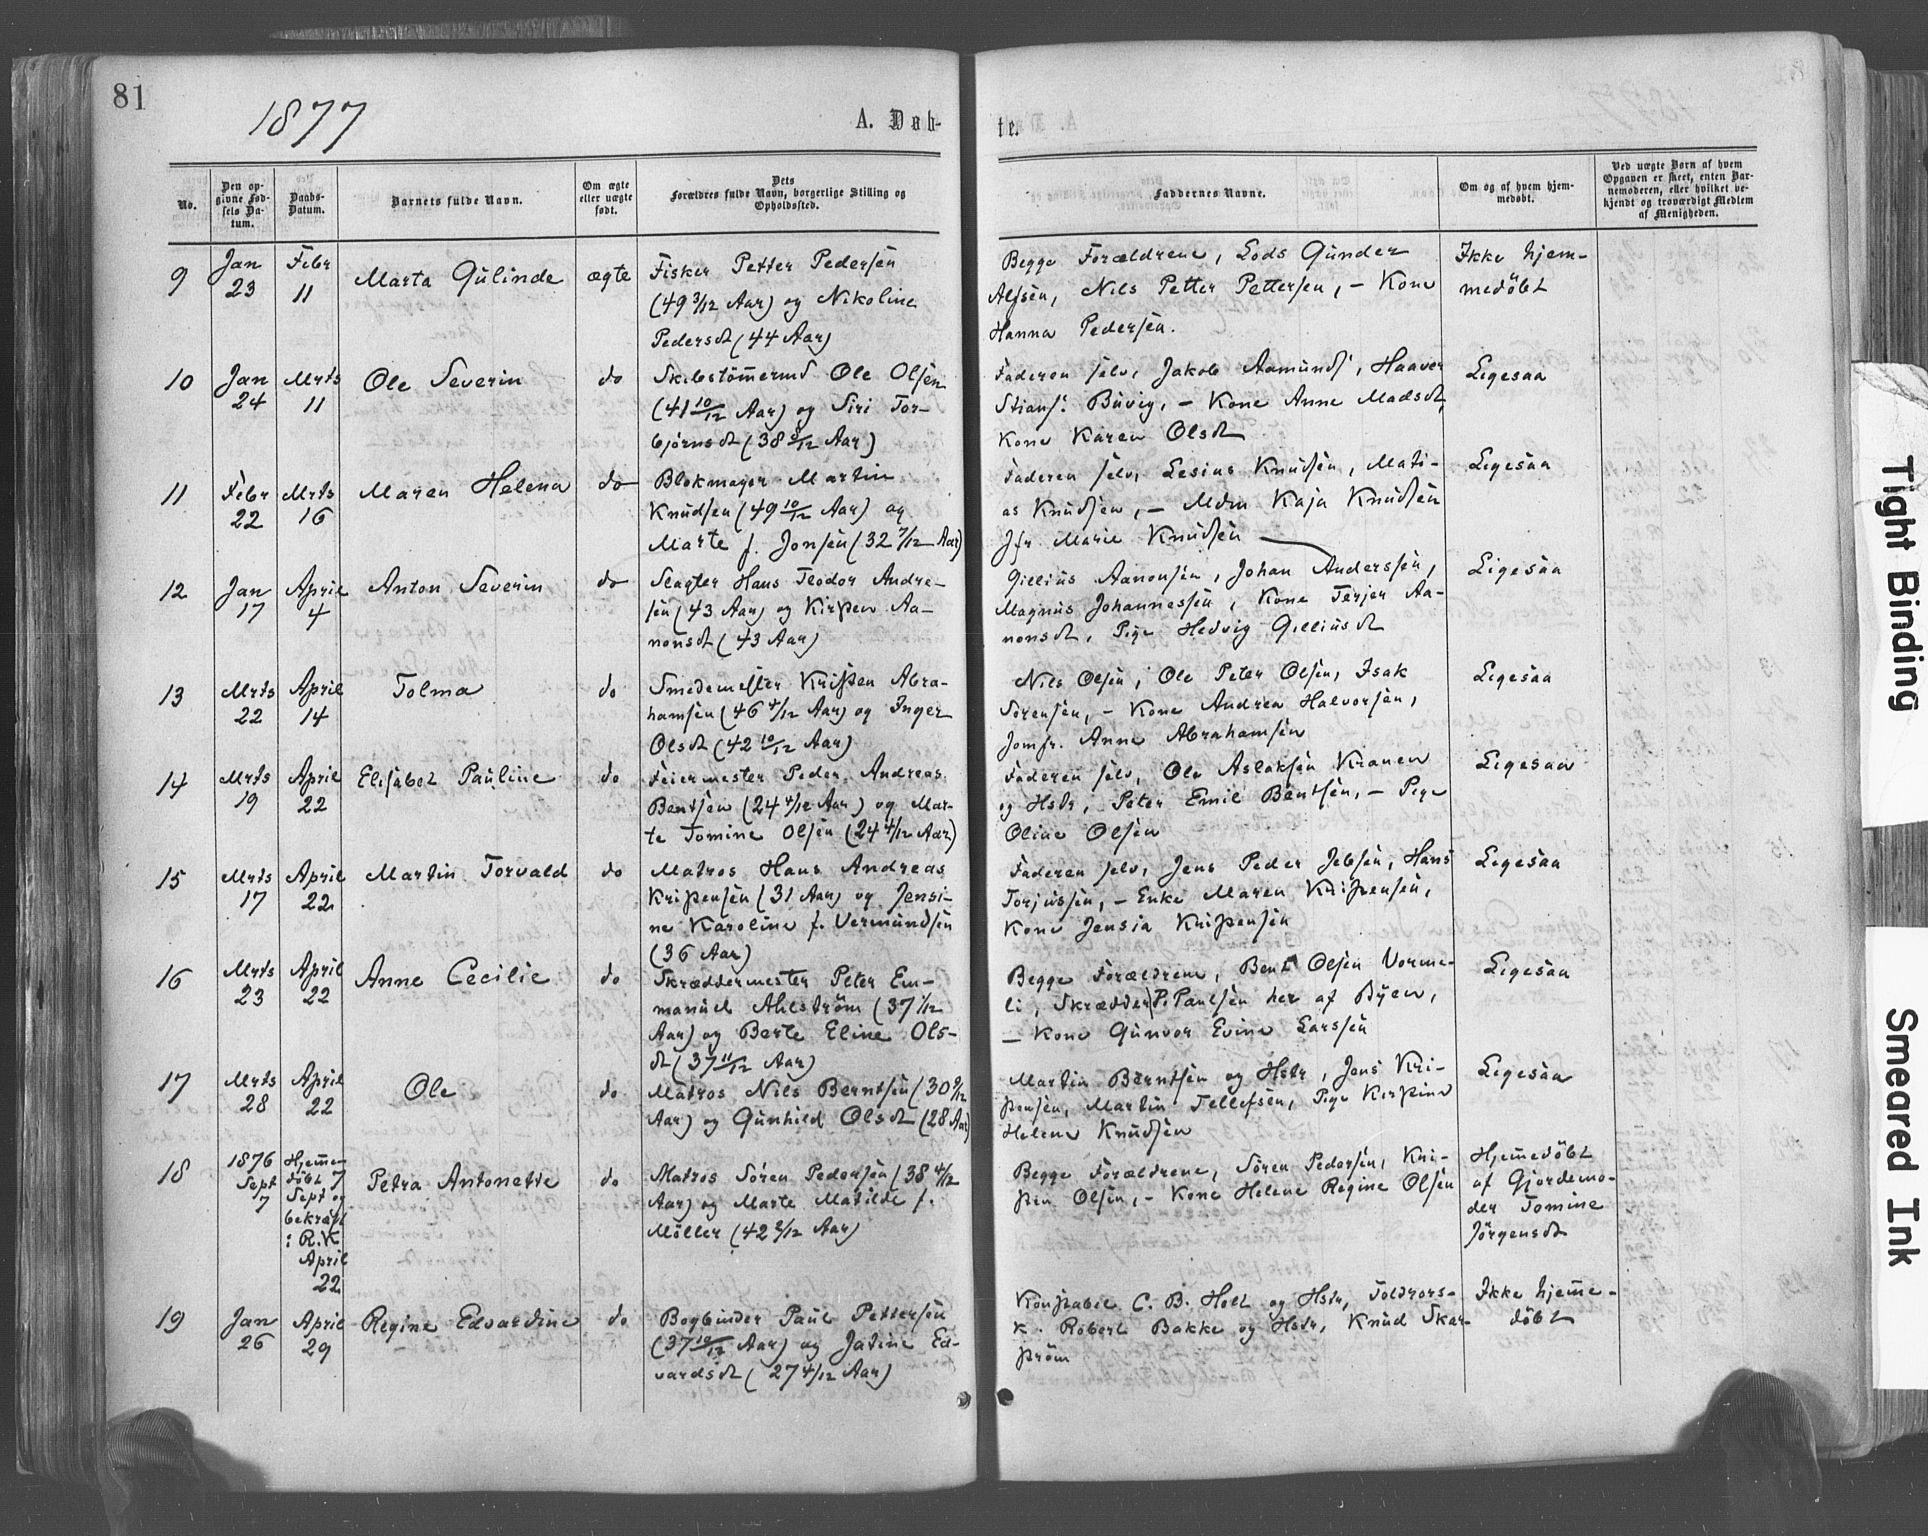 81
1877
A. Døb-
te.
No.
Den op-
givne Fød-
sels Da-
tum.
Daabs-
Datum.
Barnets fulde Navn.
Om ægte
eller uægte
født.
Dets
Forældres fulde Navn, borgerlige Stilling og
Opholdssted.
Faddernes Navne.
Om og af hvem hjem-
medøbt.
Ved uægte Børn af hvem
Opgaven er skeet, enten Bar-
nemoderen, eller hvilket be-
kjendt og troværdigt Medlem
af Menigheden.
9
Jan
23
Febr
11
Marta Gulinde
ægte
Fisker Petter Pedersen
(49 3/12 Aar) og Nikoline
Pedersdt (44 Aar)
Begge Forældrene, Lods Gunder
Alfsen, Nils Petter Pettersen, – Kone
Hanna Pedersen.
Ikke hjem-
medöbt
10
Jan
24
Mrts
11
Ole Severin
do
Skibstömermd Ole Olsen
(41 10/12 Aar) og Siri Tor-
bjørnsdt (38 8/12 Aar)
Faderen selv, Jakob Aamunds, Haaver
Stians. Buvig, – Kone Anne Madsdt,
Kone Karen Olsdt
Ligesaa
11
Febr
22
Mrts
16
Maren Helena
do
Blokmager Martin
Knudsen (49 10/12 Aar) og
Marte f. Jonsen (32 7/12 Aar)
Faderen selv, Lesius Knudsen, Mati-
as Knudsen, – Mdm Kaja Knudsen
Jfr Marie Knudsen
Ligesaa
12
Jan
17
April
4
Anton Severin
do
Slagter Hans Teodor Andre-
sen (43 Aar) og Kirsten Aa-
nonsdt (43 Aar)
Gillius Aanonsen, Johan Anderssen,
Magnus Johannessen, Kone Terjer Aa-
nonsdt, Pige Hedvig Gilliusdt
Ligesaa
13
Mrts
22
April
14
Tolma
do
Smedemester Kristen Abra-
hamsen (46 4/12 Aar) og Inger
Olsdt (42 10/12 Aar)
Nils Olsen, Ole Peter Olsen, Isak
Sörensen, – Kone Andrea Halvorsen,
Jomfr. Anne Abrahamsen
Ligesaa
14
Mrts
19
April
22
Elisabet Pauline
do
Feiermester Peder Andreas
Bentsen (24 4/12 Aar) og Mar-
te Tomine Olsen (24 4/12 Aar)
Faderen selv, Ole Aslaksen Kranen
og Hstr, Peter Emil Bentsen, – Pige
Oline Olsen
Ligesaa
15
Mrts
17
April
22
Martin Torvald
do
Matros Hans Andreas
Kristensen (31 Aar) og Jensi-
ne Karoline f. Vermundsen
(36 Aar)
Faderen selv, Jens Peder Jebsen, Hans
Torjussen, – Enke Maren Kristensen,
Kone Jensia Kristensen
Ligesaa
16
Mrts
23
April
22
Anne Cecilie
do
Skræddermester Peter Em-
manuel Ahlström (37 1/12
Aar) og Berte Eline Ols-
dt (37 11/12 Aar)
Begge Forældrene, Bent Olsen Vorme-
li, Skrædder P. Paulsen her af Byen,
– Kone Gunvor Evine Larssen
Ligesaa
17
Mrts
28
April
22
Ole
do
Matros Nils Berntsen (30 9/12
Aar) og Gunhild Olsdt (28 Aar)
Martin Berntsen og Hstr, Jens Kri-
stensen, Martin Tellefsen, Pige Kirstine
Helene Knudsen
Ligesaa
18
1876
Sept
7
Hjemme-
döbt 7
Sept og
bekræft
i R.K
April
22
Petra Antonette
do
Matros Sören Pedersen (38 4/12
Aar) og Marte Matilde f.
Möller (42 2/12 Aar)
Begge Forældrene, Sören Pedersen, Kri-
sten Olsen, – Kone Helene Regine Olsen
Hjemedöbt
af Gjordemo-
der Tomine
Jörgensdt
19
Jan
26
April
29
Regine Edvardine
do
Bogbinder Paul Pettersen
(37 10/12 Aar) og Jatine Ed-
vardsdt (27 4/12 Aar)
Konstabel C. B. Holt og Hstr, Toldrors-
k. Robert Bakke og Hstr, Knud Skar-
ström
Ikke hjemme-
döbt
Tight Binding
Smeared Ink